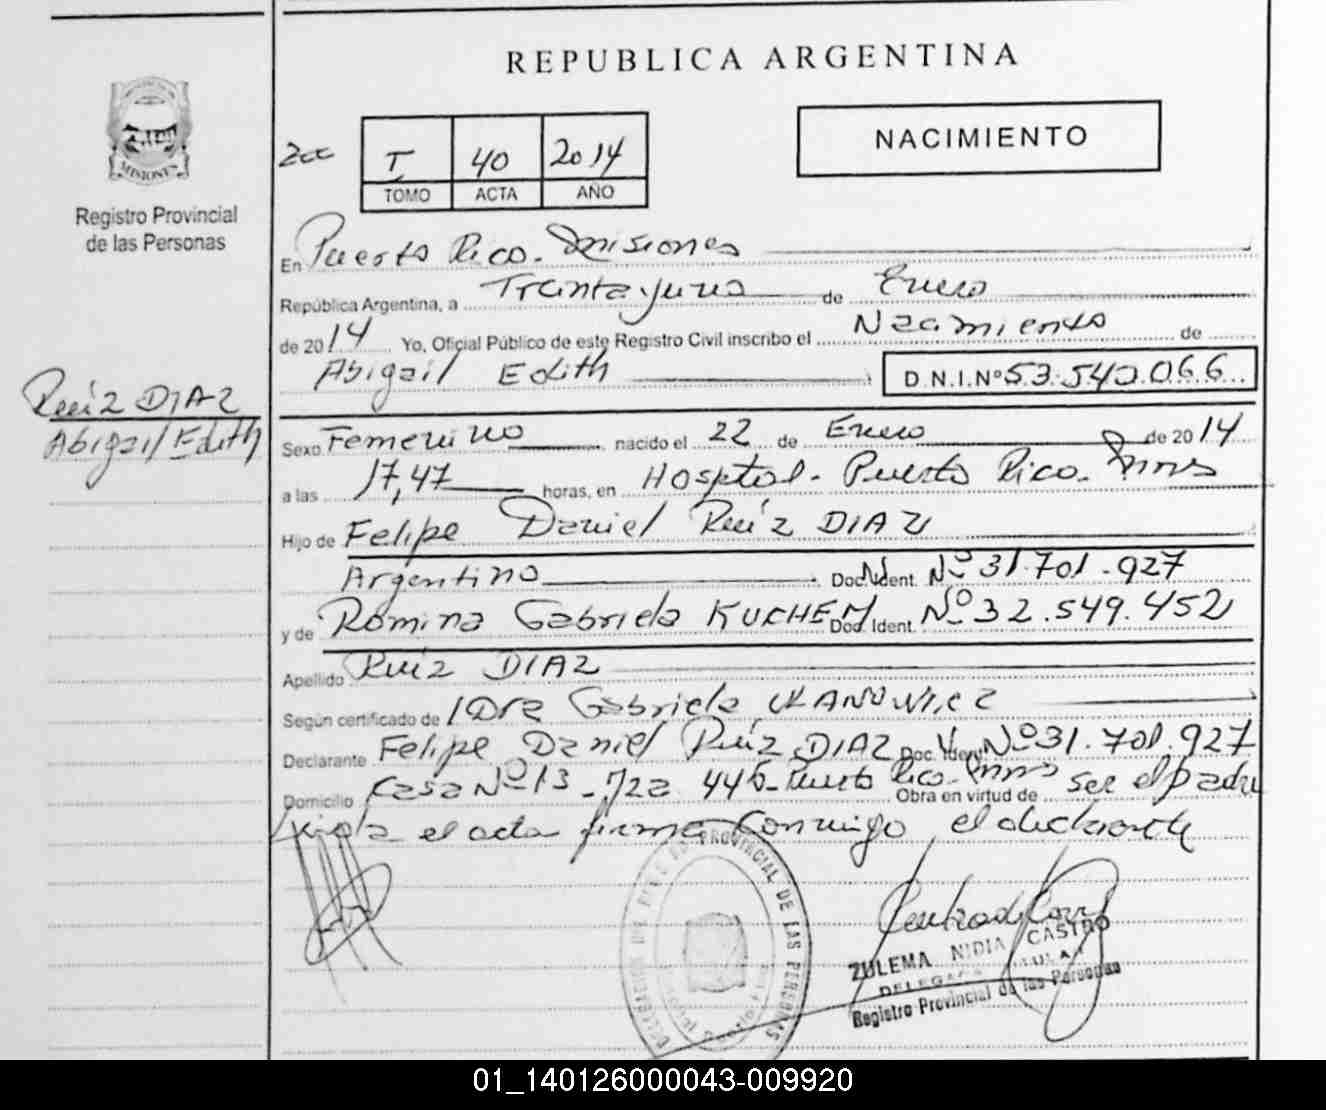 REPUBLICA ARGENTINA
MISIONES
Registro Provincial
de las Personas
I 40 2014
TOMO ACTA AÑO
NACIMIENTO
En Puerto Rico - Misiones
República Argentina, a Treinta y uno de Enero
de 2014 Yo, Oficial Público de este Registro Civil inscribo el Nacimiento de
Abigail Edith D.N.I.Nº 53.540.066
Ruiz DIAZ
Abigail Edith
Sexo Femenino nacido el 22 de Enero de 2014
a las 17,47 horas, en Hospital - Puerto Rico - Mnes
Hijo de Felipe Daniel Ruíz DIAZ
Argentino Doc. Ident. Nº 31.701.927
y de Romina Gabriela KUCHEM Doc. Ident. Nº 32.549.452
Apellido Ruiz DIAZ
Según certificado de Dra Gabriela
Declarante Felipe Daniel Ruíz DIAZ Doc. Ident. Nº 31.701.927
Domicilio Casa Nº 13 - Mza 446 - Puerto Rico - Mnes Obra en virtud de ser el padre
Leida el acta firma conmigo el declarante
PROVINCIAL DE LAS PERSONAS
ZULEMA NIDIA CASTRO
DELEGADA TITULAR
Registro Provincial de las Personas
01_140126000043-009920